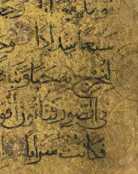 سبعا شدادا و
لنخرج به حبا ونبا
في الصور فتأتون أفو
فكانت سرابا